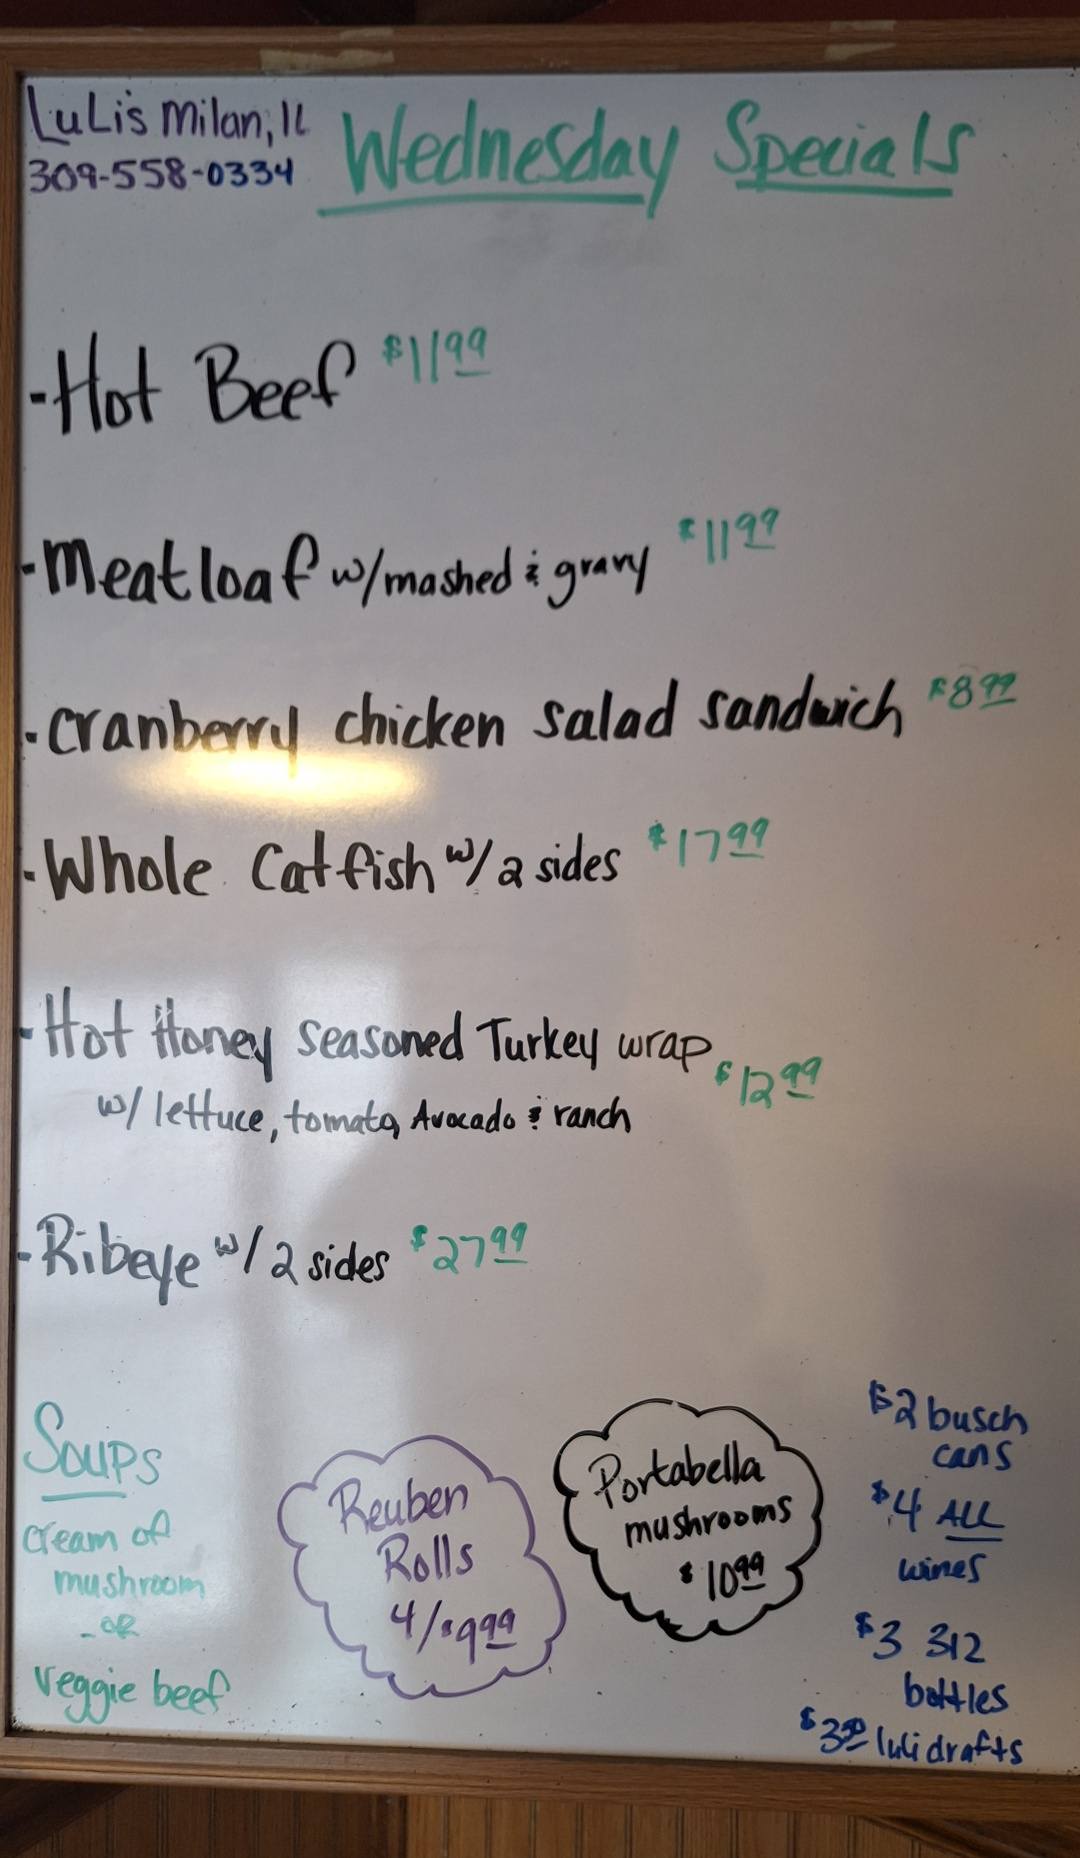 LuLi's Milan, IL
309-558-0334
Wednesday Specials
- Hot Beef $11.99
- Meatloaf w/mashed & gravy $11.99
- cranberry chicken salad sandwich $8.99
- Whole Catfish w/2 sides $17.99
- Hot Honey seasoned Turkey wrap $12.99
w/ lettuce, tomato, Avocado & ranch
- Ribeye w/2 sides $27.99
Soups
cream of
mushroom
- OR
veggie beef
Reuben
Rolls
4/$9.99
Portabella
mushrooms
$10.99
$2 busch
cans
$4 ALL
wines
$3 312
bottles
$3.50 luli drafts